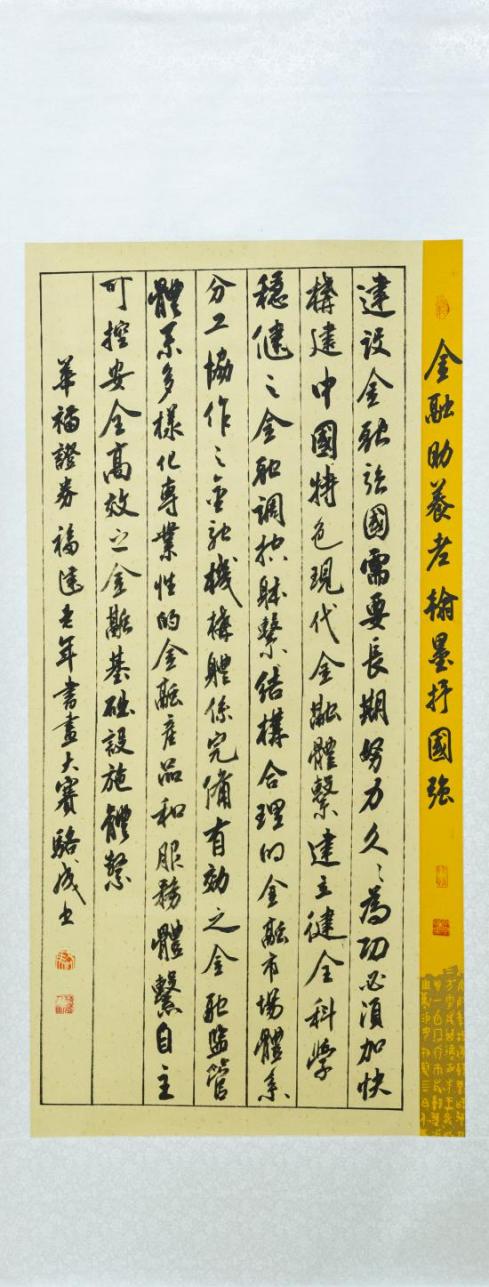 金融助養老翰墨抒國強
建设金融强國需要長期努力久々為功必須加快
構建中國特色現代金融體繫建立健全科學
穩健之金融调控躰繫結構合理的金融市場體系
分工協作之金融機構體係完備有効之金融監管
體系多樣化專業性的金融産品和服務體繫自主
可控安全高效之金融基础設施體繫
華福證券福建老年書畫大賽駱成書